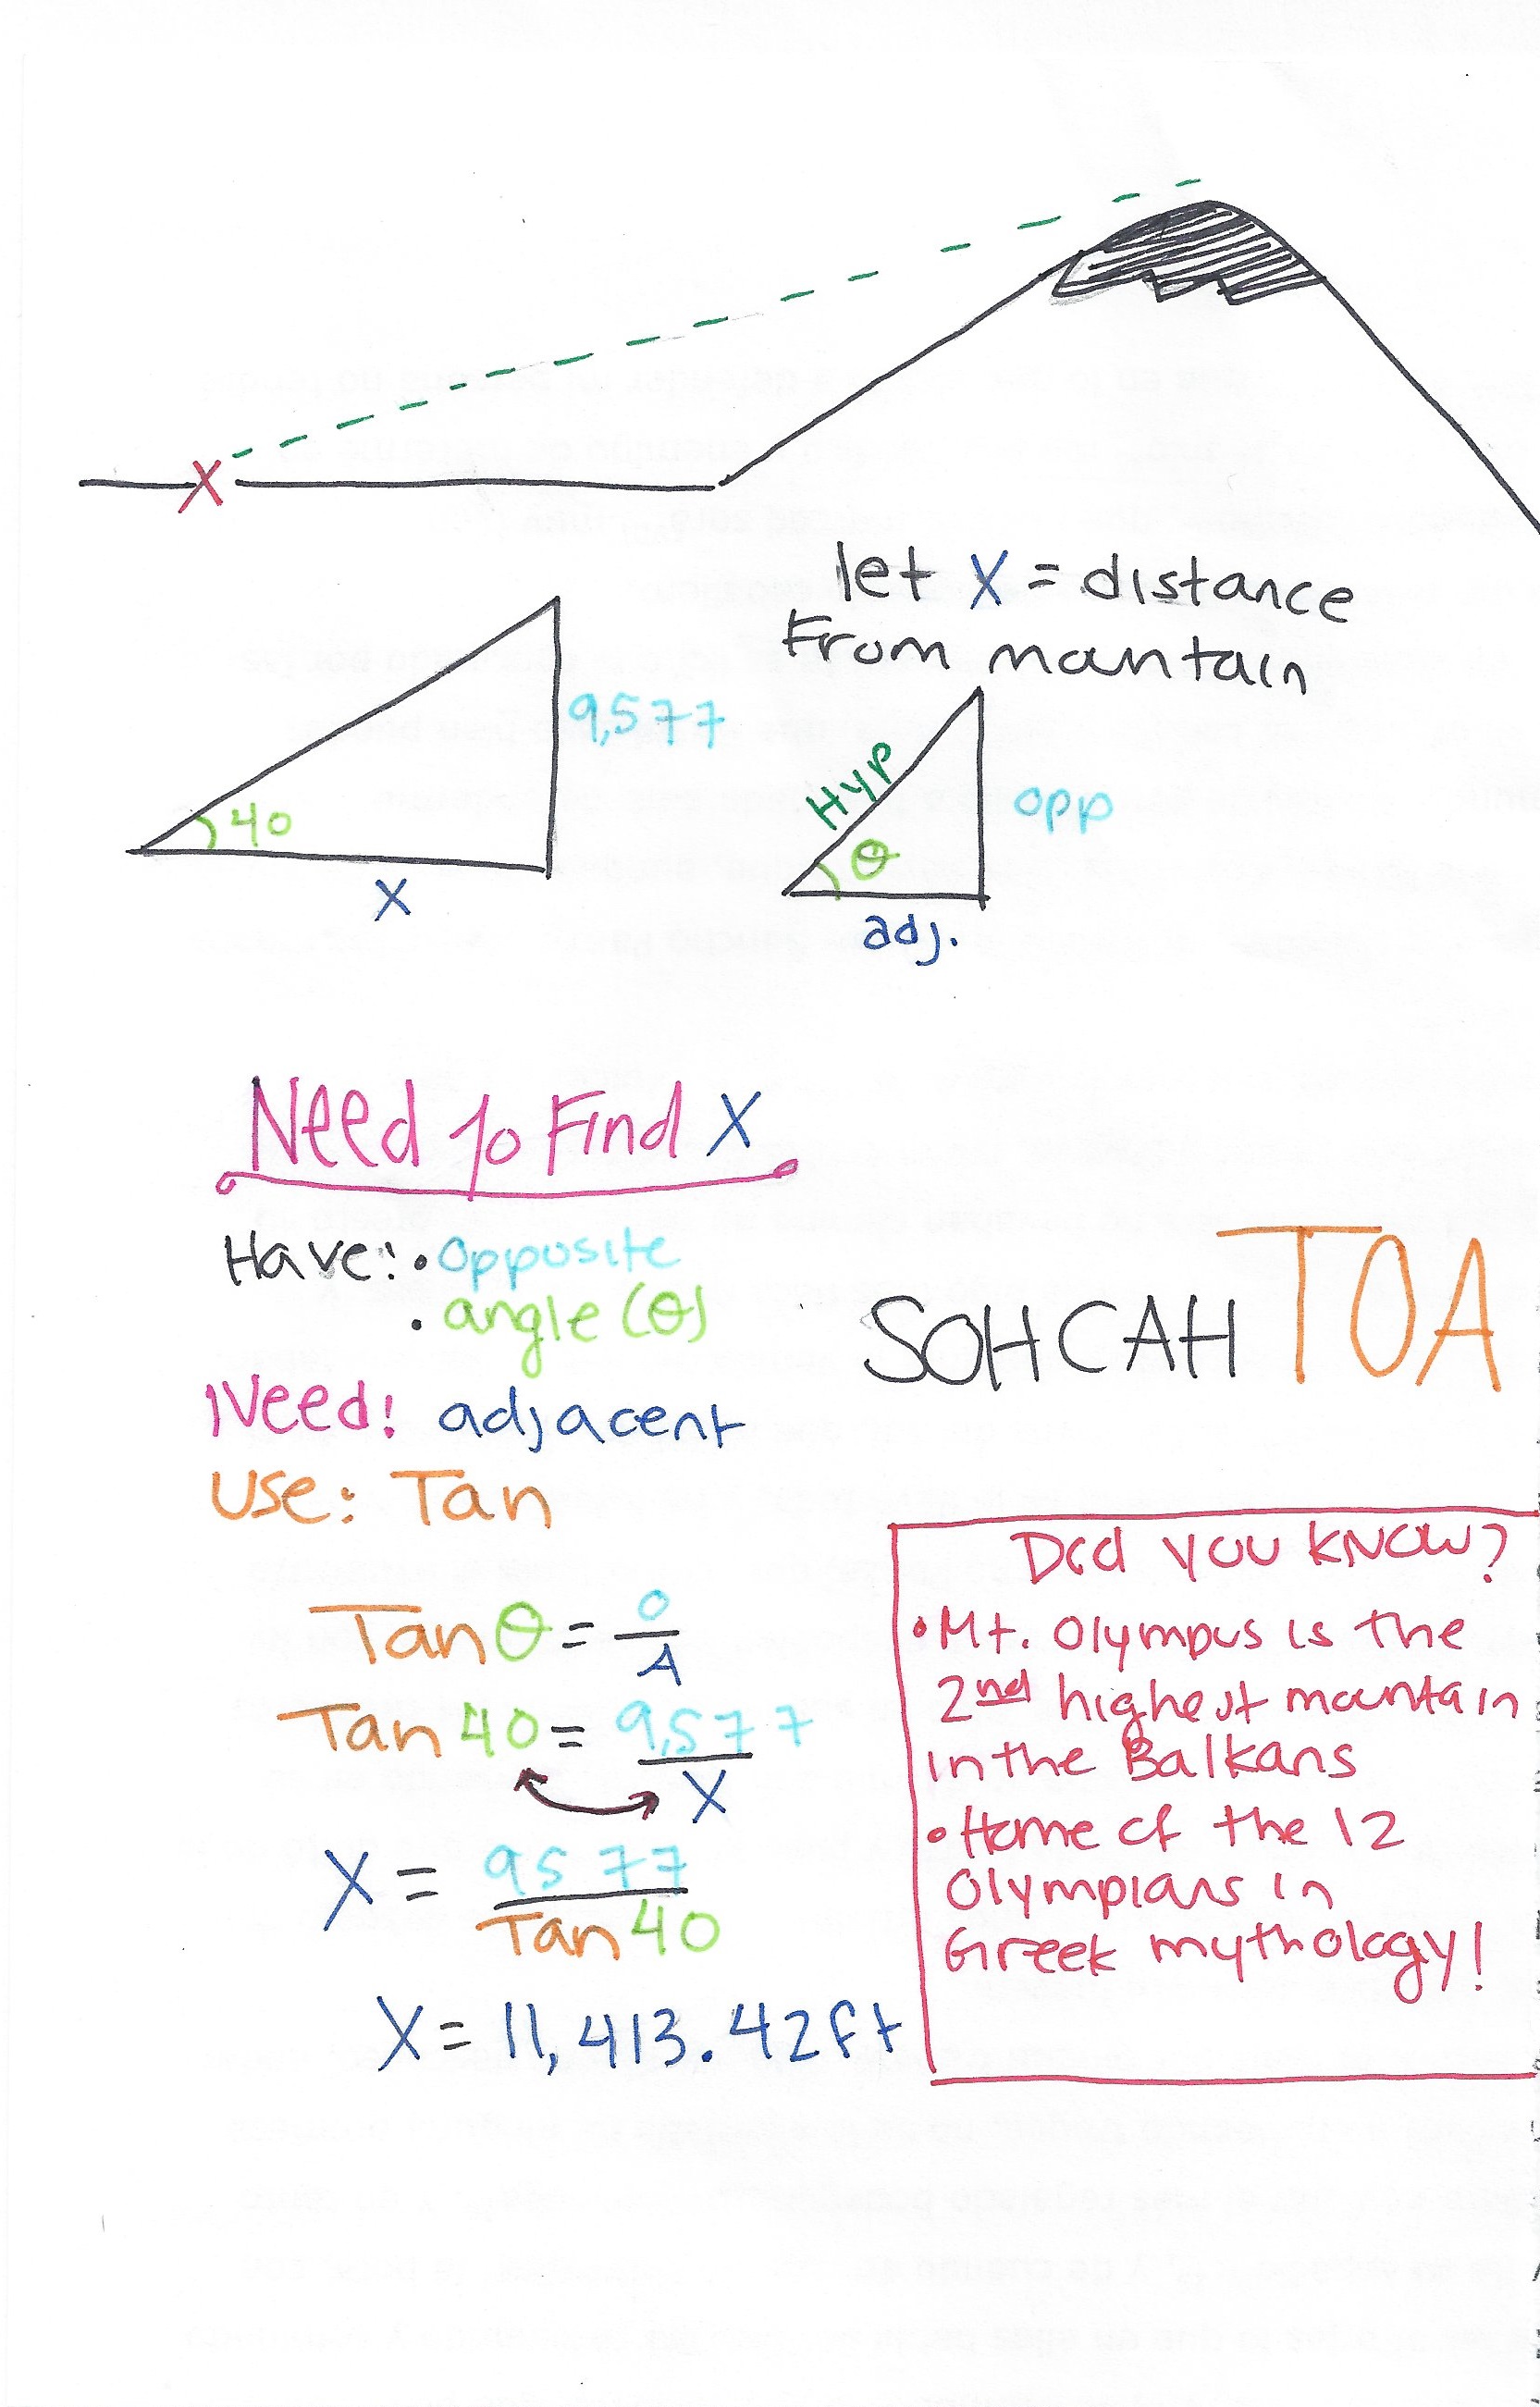 X
let X = distance
From mountain
9,577
40
X
Hyp
opp
θ
adj.
Need to Find X
Have: • Opposite
• angle (θ)
Need: adjacent
Use: Tan
SOHCAHTOA
Tan θ = O/A
Tan 40 = 9,577/X
X = 9577/Tan 40
X = 11,413.42ft
Did you KNOW?
• Mt. Olympus is the
2nd highest mountain
in the Balkans
• Home of the 12
Olympians in
Greek mythology!